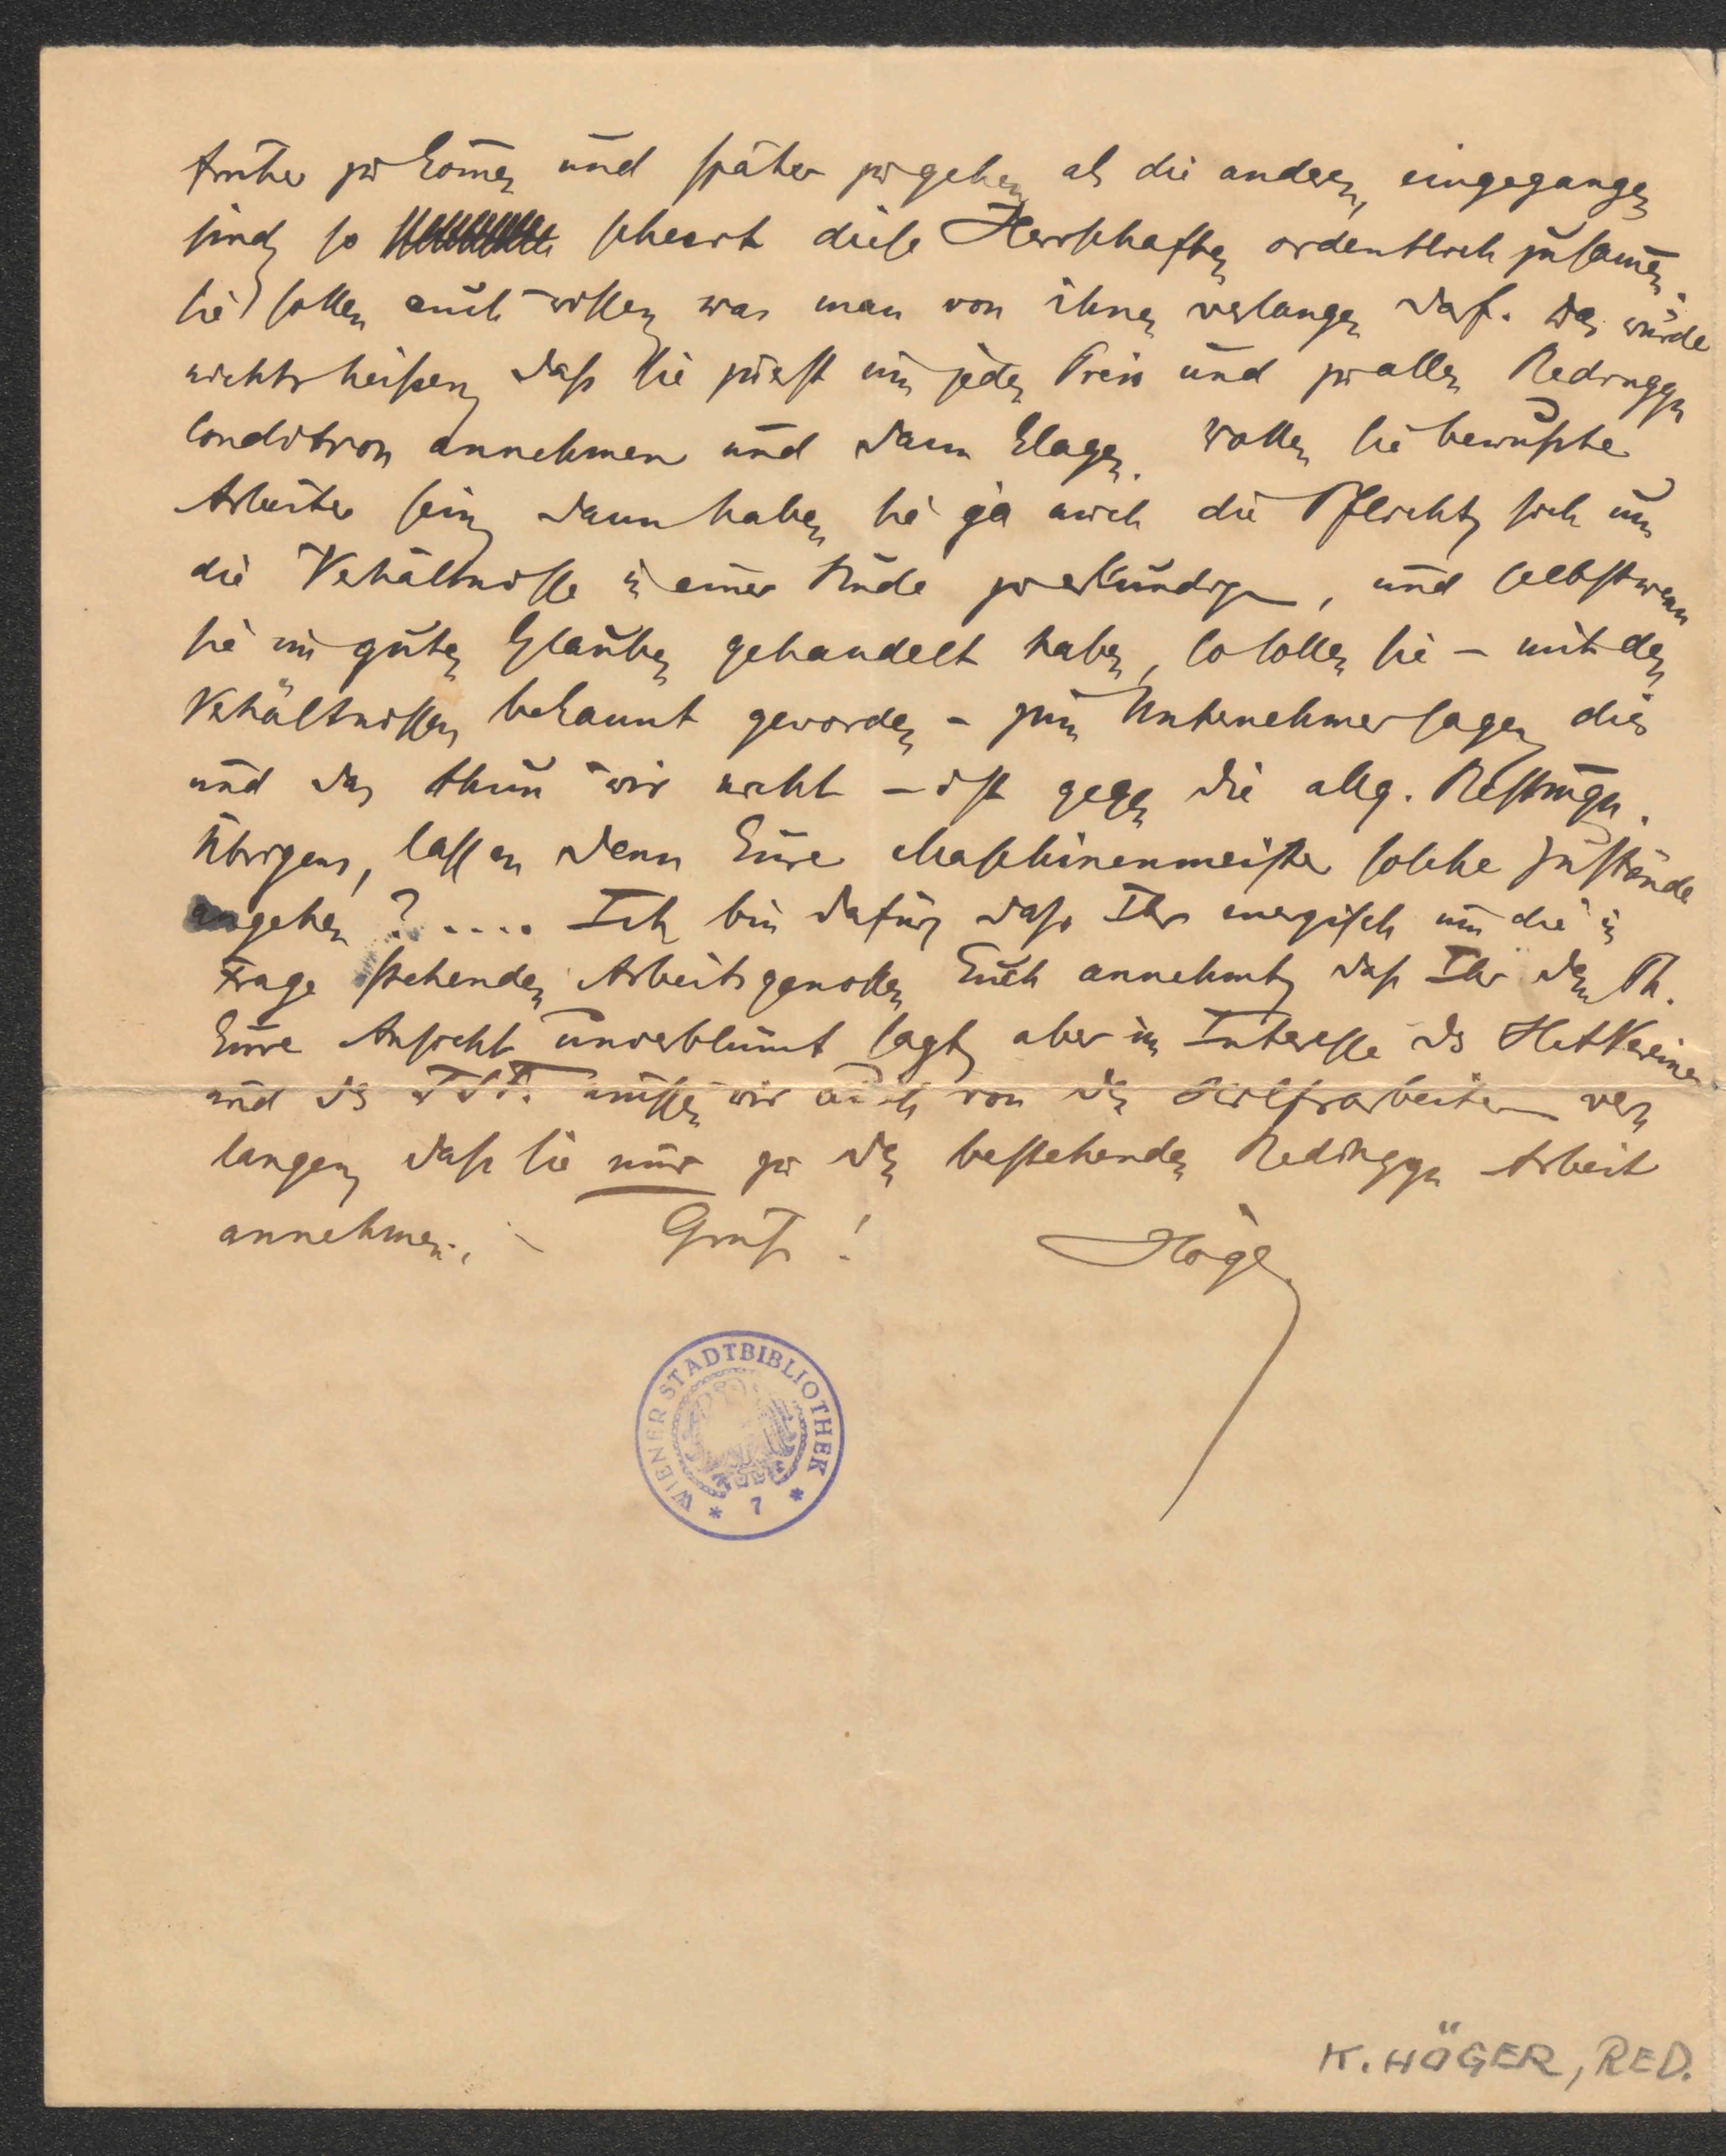 früher zu kom̄en und später zu gehen als die andern, eingegangen
sind, so scheert diese Herrschaften ordentlich zusam̄en.
sie sollen auch wissen, was man von ihnen verlangen darf. Das würde
nichts heißen, daß sie zuerst um jeden Preis und zu allen Bedinggn
Condition annehmen und dann klagen. Wollen sie bewußte
Arbeiter sein, dann haben sie ja auch die Pflicht, sich um
die Verhältnisse in einer Bude zu erkundigen, und selbst wenn
sie im guten Glauben gehandelt haben, so sollen sie – mit den
Verhältnissen bekannt geworden – zum Unternehmer sagen, dies
und das thun wir nicht – ist gegen die allg. Bestimgn.
Übrigens, lassen denn Eure Maschinenmeister solche Zustände
angehen? .... Ich bin dafür, daß Ihr energisch um die in
Frage stehenden Arbeitsgenossen Euch annehmt, daß Ihr dem Th.
Eure Ansicht unverblümt sagt, aber im Interesse des
und des müssen wir auch von den Hilfsarbeitern ver
langen, daß sie nur zu den bestehenden Bedinggn Arbeit
annehmen. – Gruß! Höger
WIENER STADTBIBLIOTHEK
* 7 *
K. HÖGER, RED.